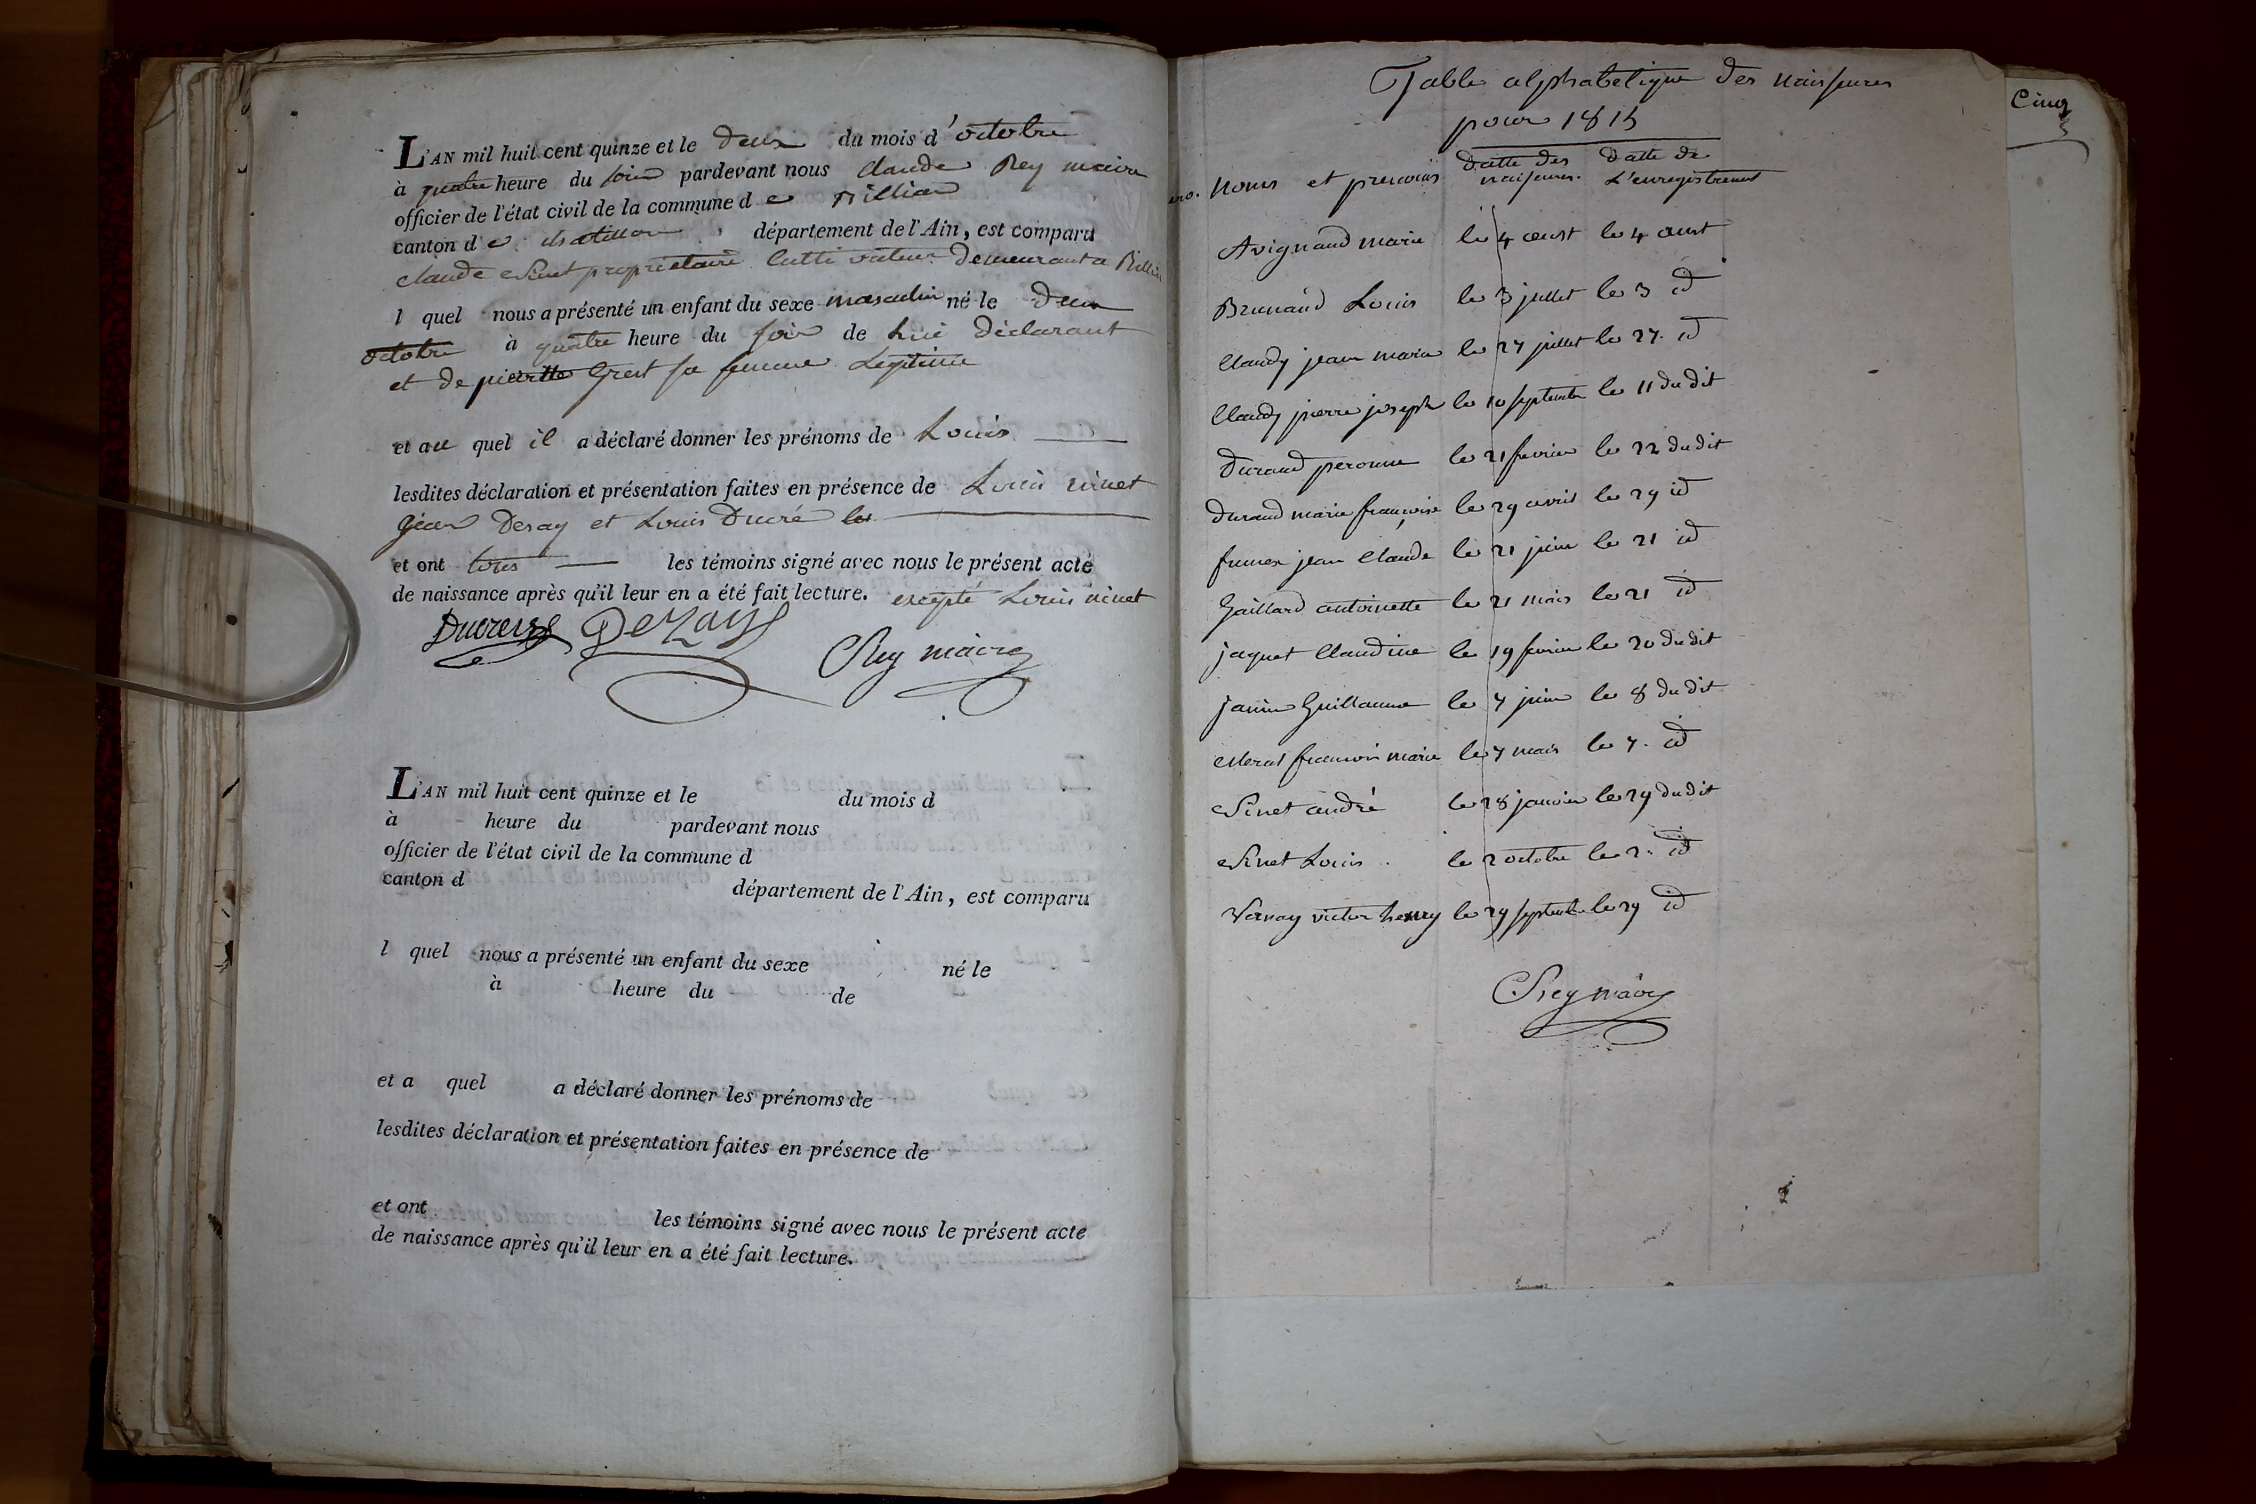 L'AN mil huit cent quinze et le deux du mois d'octobre
à quatre heure du soir pardevant nous claude Rey maire
officier de l'état civil de la commune de
canton de chatillon département de l'Ain, est comparu
claude propriétaire cultivateur demeurant a
l quel nous a présenté un enfant du sexe masculin né le deux
octobre à quatre heure du soir de lui déclarant
et de pierrette sa femme legitime
et au quel il a déclaré donner les prénoms de Louis
lesdites déclaration et présentation faites en présence de Louis
jean Desay et Louis Ducré les
et ont tous les témoins signé avec nous le présent acte
de naissance après qu'il leur en a été fait lecture. excepté Louis
Dezay
Rey maire
L'AN mil huit cent quinze et le du mois d
à heure du pardevant nous
officier de l'état civil de la commune d
canton d département de l'Ain, est comparu
l quel nous a présenté un enfant du sexe né le
à heure du de
et a quel a déclaré donner les prénoms de
lesdites déclaration et présentation faites en présence de
et ont les témoins signé avec nous le présent acte
de naissance après qu'il leur en a été fait lecture.
Cinq
Table alphabetique des naissences
pour 1815
noms et prenoms datte des naissences. datte de L'enregistrement
Avignand marie le 4 le 4
Brunaud Louis le 3 juillet le 3 id
Claudy jean marie le 27 juillet le 27. id
Claudy pierre joseph le 10 septembre le 11 du dit
Durand peronne le 21 fevrier le 22 du dit
Durand marie françoise le 29 avril le 29 id
jean Claude le 21 juin le 21 id
Gaillard antoinette le 21 mars le 21 id
jaquet Claudine le 19 fevrier le 20 du dit
janin Guillaume le 7 juin le 8 du dit
marie le 7 mars le 7. id
andré le 28 janvier le 29 du dit
Louis le 2 octobre le 2. id
Vernay victor henry le 29 septembre le 29 id
Rey maire